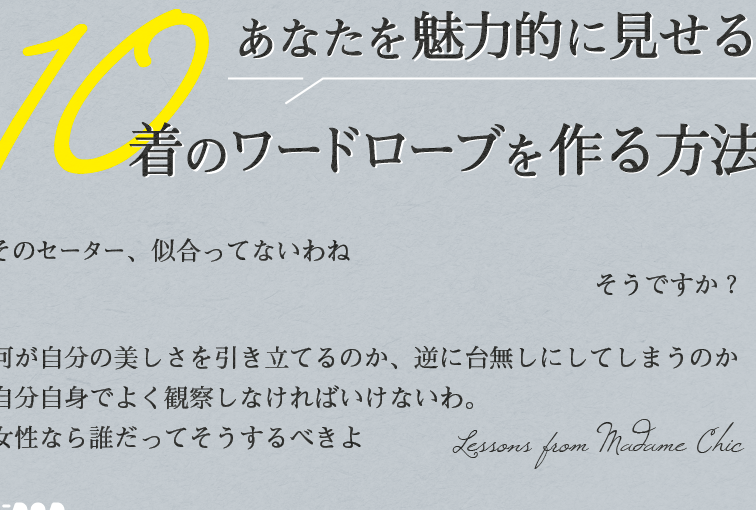 あなたを魅力的に見せる
10着のワードローブを作る方法
そのセーター、似合ってないわね
そうですか？
何が自分の美しさを引き立てるのか、逆に台無しにしてしまうのか
自分自身でよく観察しなければいけないわ。
女性なら誰だってそうするべきよ
Lessons from Madame Chic